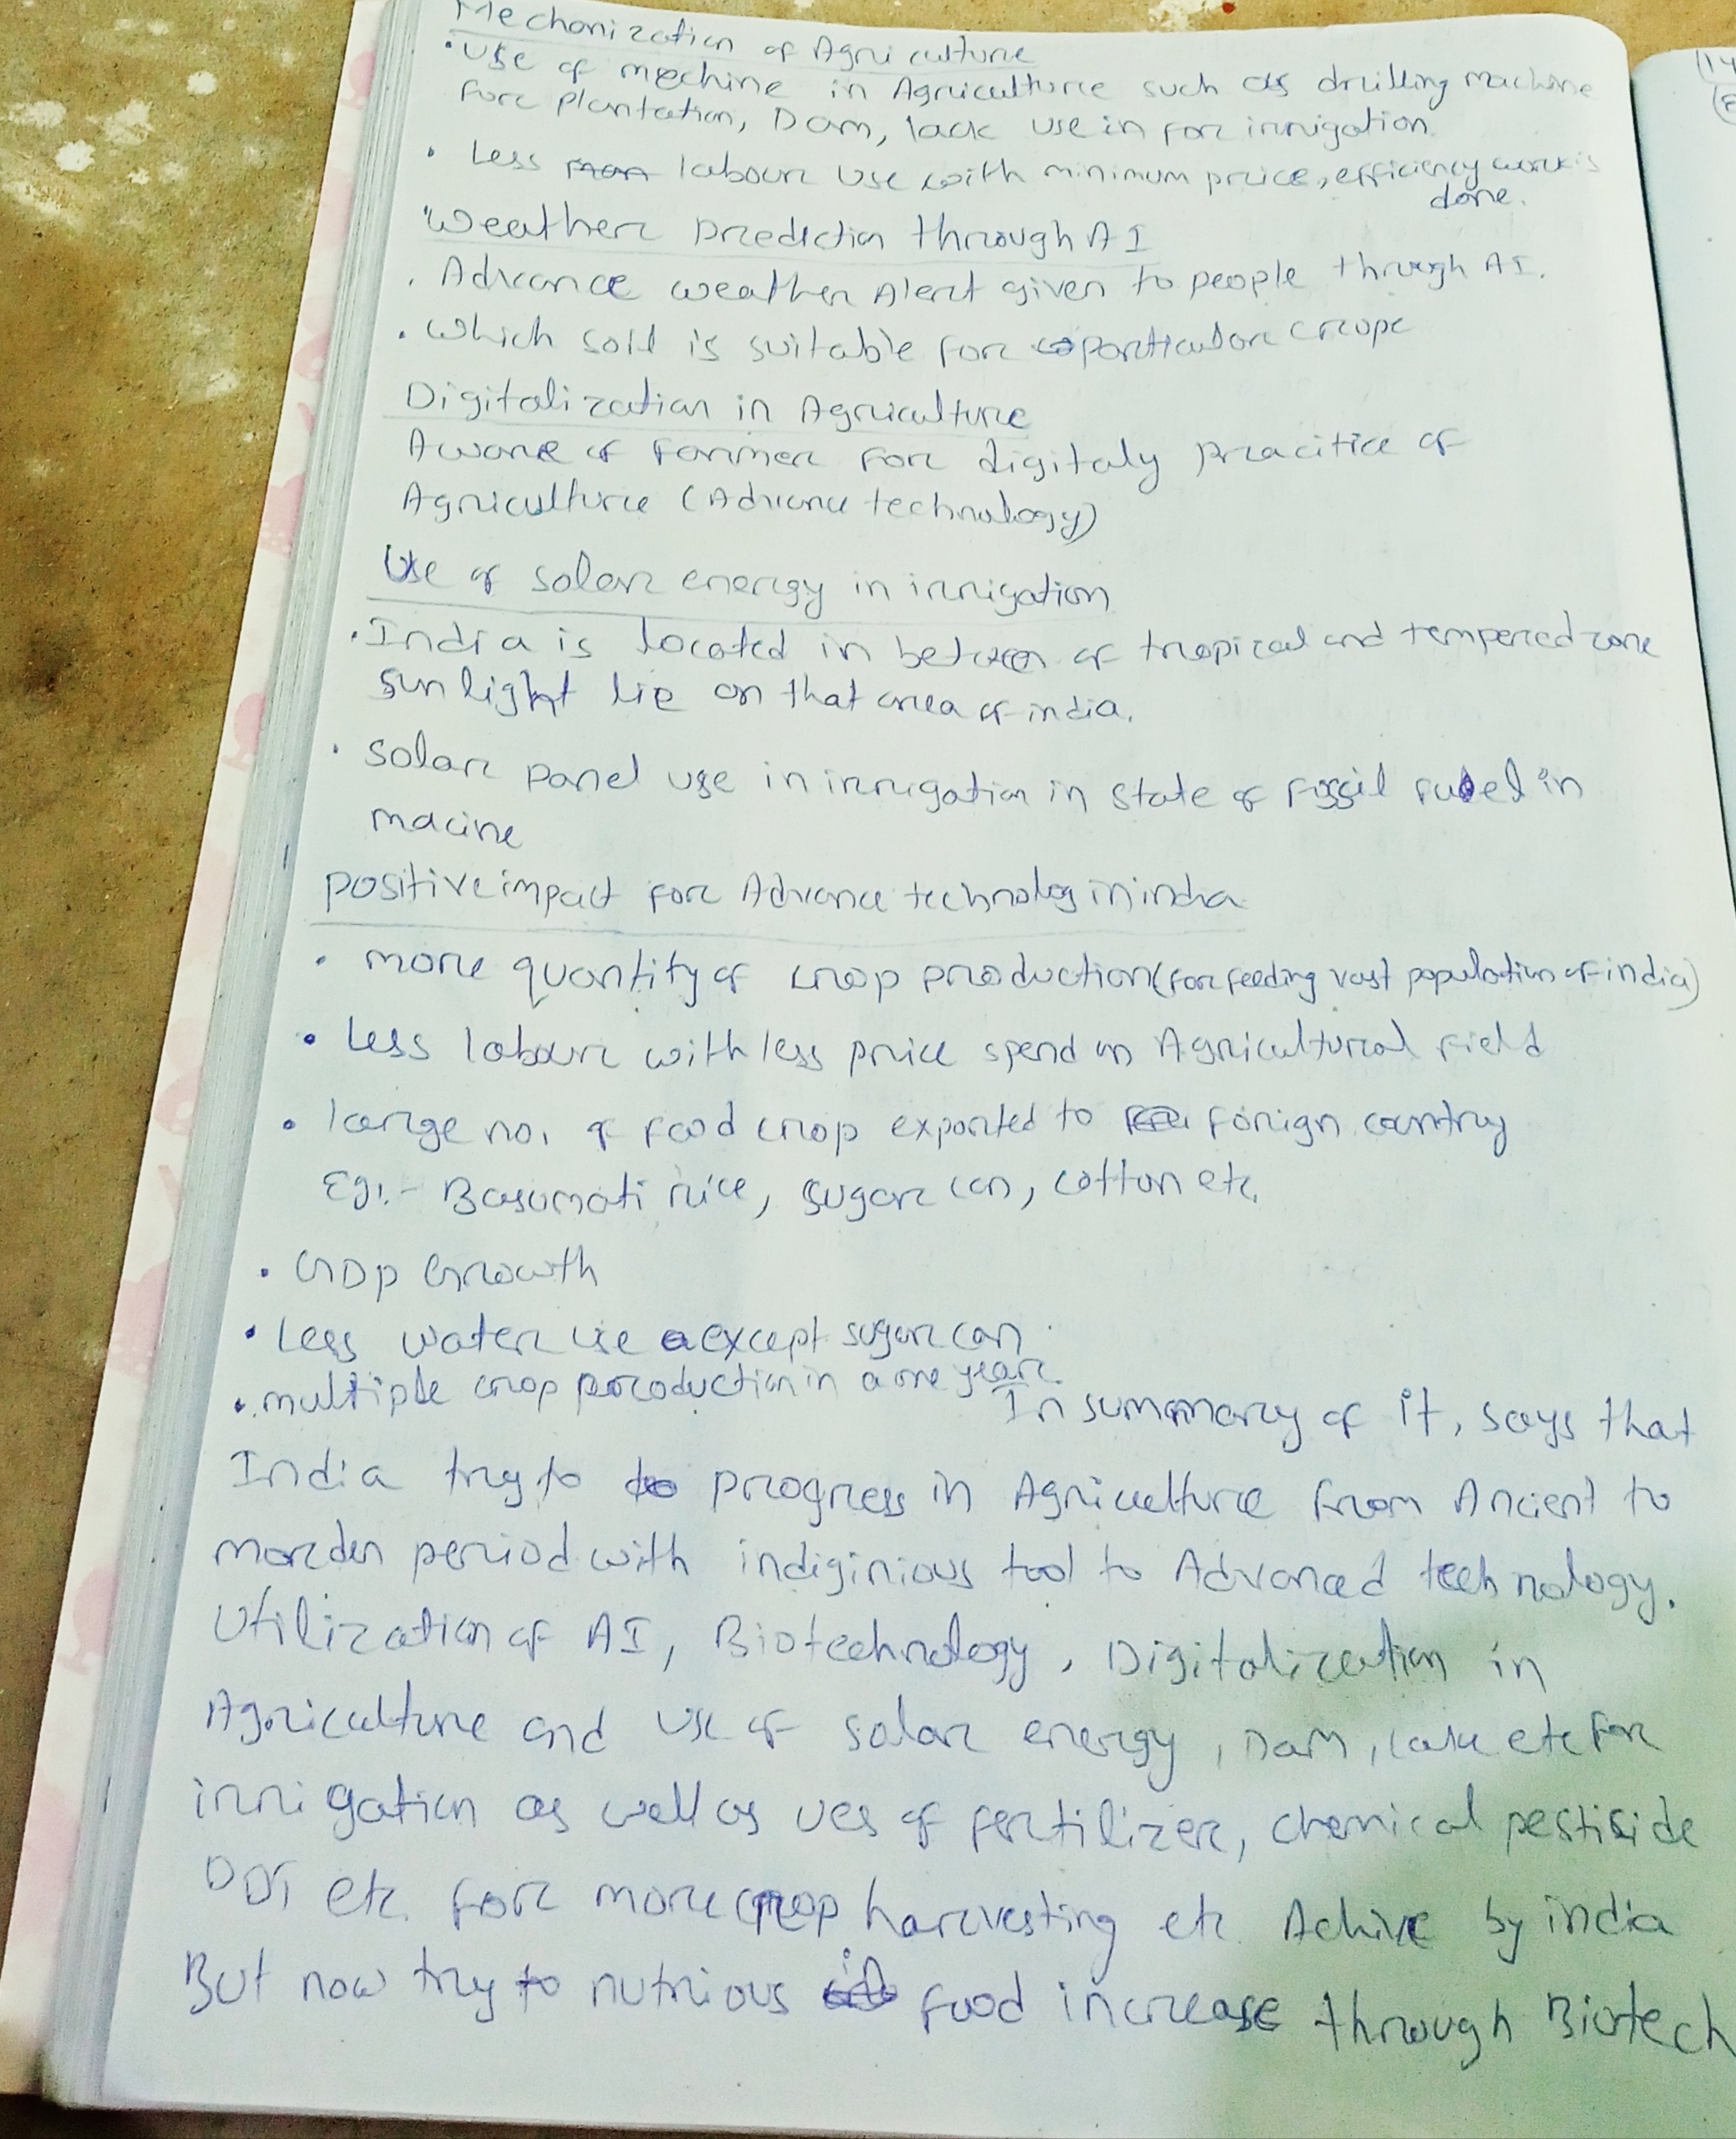 Mechanization of Agriculture
• Use of mechine in Agriculture such as drilling machine
for plantation, Dam, lack use in for irrigation.
• Less labour use with minimum price, efficiency work is
done.
Weather prediction through AI
• Advance weather Alert given to people through AI.
• Which soil is suitable for particular crops
Digitalization in Agriculture
Aware of farmer for digitaly pracitice of
Agriculture (Advance technology)
Use of solar energy in irrigation
• India is located in between of tropical and tempered zone
sunlight lie on that area of india.
• Solar panel use in irrigation in state of fossil fuel in
macine
positive impact for Advance technolog in india
• more quantity of crop production (for feeding vast population of india)
• Less labour with less price spend on Agricultural field
• large no. of food crop exported to forign country
Eg:- Basumati rice, sugar can, cotton etc.
• GDP Growth
• Less water use except sugar can
• multiple crop production in a one year.
In summary of it, says that
India try to progress in Agriculture from Ancient to
morden period with indiginious tool to Advanced technology.
Utilization of AI, Biotechnology, Digitalization in
Agriculture and use of solar energy, Dam, lake etc for
irrigation as well as ues of fertilizer, chemical pestiside
DDT etc. for more crop harvesting etc Achive by india
But now try to nutrious food increase through Biotech